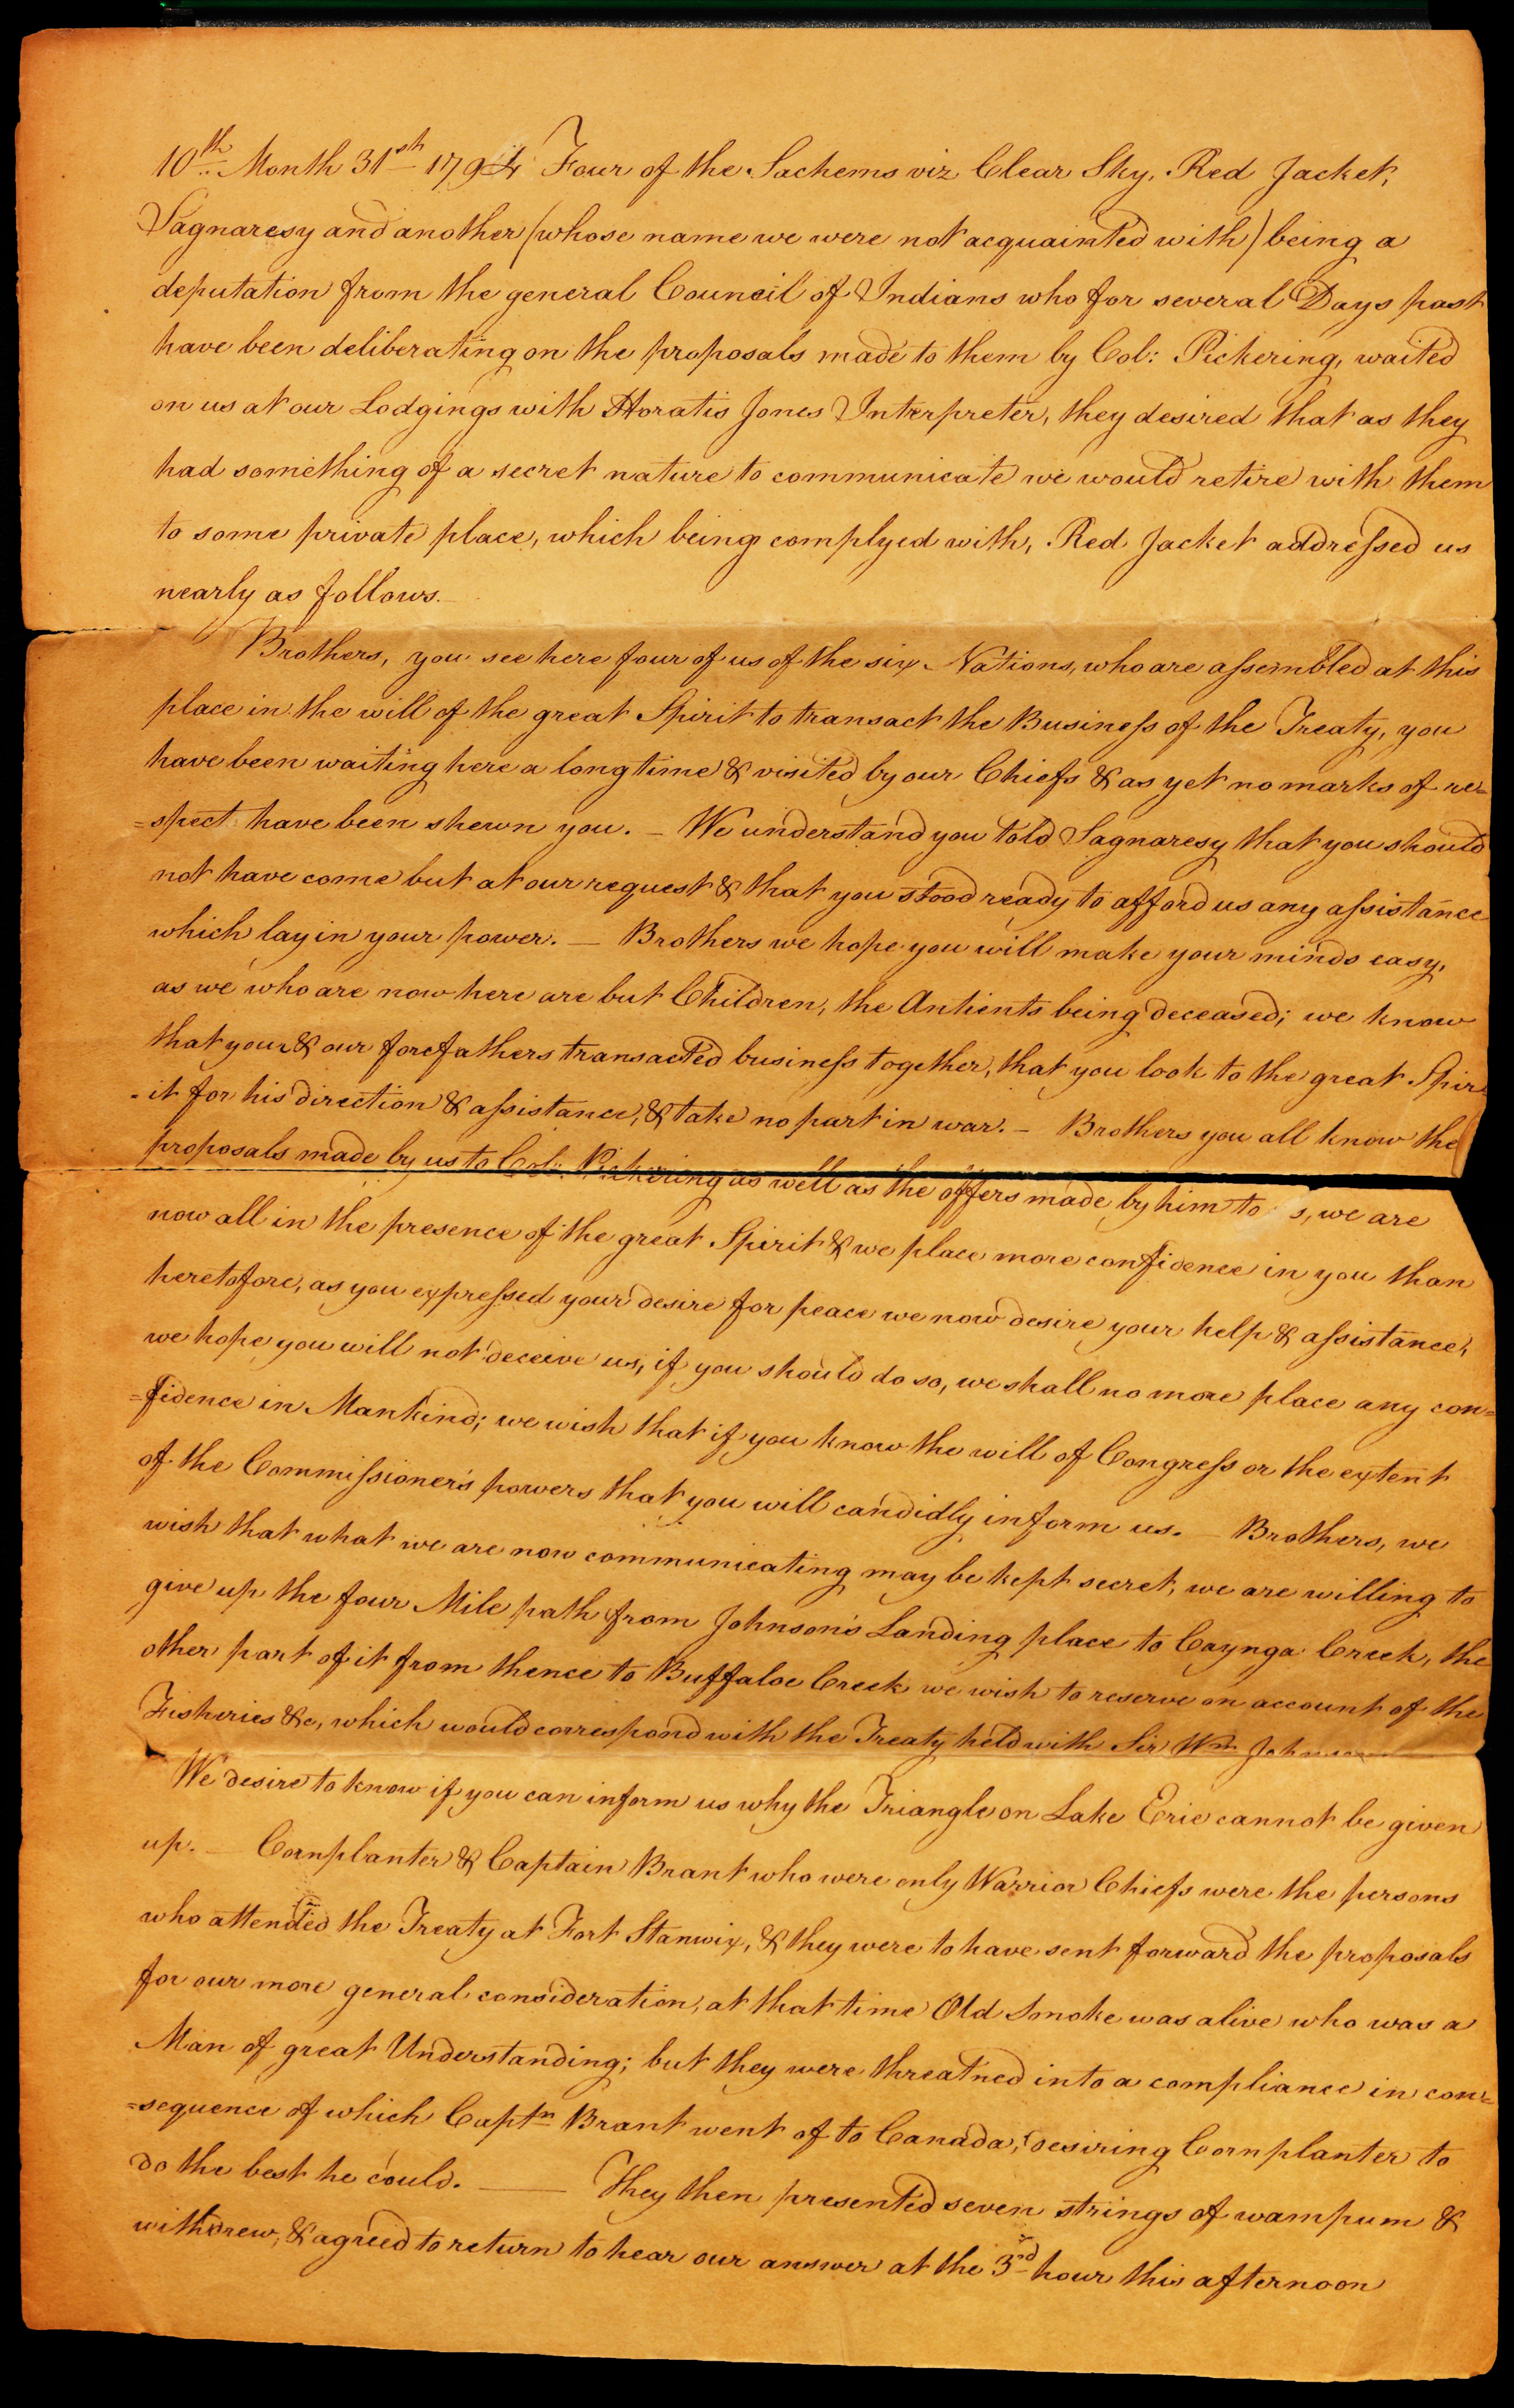 10th Month 31st 1794 Four of the Sachems viz Clear Sky, Red Jacket,
Sagnaresy and another (whose name we were not acquainted with) being a
deputation from the general Council of Indians who for several Days past
have been deliberating on the proposals made to them by Col: Pickering, waited
on us at our Lodgings with Horatio Jones Interpreter, they desired that as they
had something of a secret nature to communicate we would retire with them
to some private place, which being complyed with, Red Jacket addressed us
nearly as follows.
Brothers, you see here four of us of the six Nations, who are assembled at this
place in the will of the great Spirit to transact the Business of the Treaty, you
have been waiting here a long time & visited by our Chiefs & as yet no marks of re=
=spect have been shewn you. — We understand you told Sagnaresy that you should
not have come but at our request & that you stood ready to afford us any assistance
which lay in your power. — Brothers we hope you will make your minds easy,
as we who are now here are but Children, the Antients being deceased; we know
that your & our forefathers transacted business together, that you look to the great Spir=
=it for his direction & assistance, & take no part in war. — Brothers you all know the
proposals made by us to Col: Pickering as well as the offers made by him to s, we are
now all in the presence of the great Spirit & we place more confidence in you than
heretofore, as you expressed your desire for peace we now desire your help & assistance,
we hope you will not deceive us, if you should do so, we shall no more place any con=
=fidence in Mankind; we wish that if you know the will of Congress or the extent
of the Commissioner's powers that you will candidly inform us. — Brothers, we
wish that what we are now communicating may be kept secret, we are willing to
give up the four Mile path from Johnson's Landing place to Caynga Creek, the
other part of it from thence to Buffaloe Creek we wish to reserve on account of the
Fisheries &c, which would correspond with the Treaty held with Sir Wm Johnson
We desire to know if you can inform us why the Triangle on Lake Erie cannot be given
up. — Cornplanter & Captain Brant who were only Warrior Chiefs were the persons
who attended the Treaty at Fort Stanwix, & they were to have sent forward the proposals
for our more general consideration, at that time Old Smoke was alive who was a
Man of great Understanding; but they were threatned into a compliance in con=
=sequence of which Captn Brant went of to Canada, desiring Cornplanter to
do the best he could. — They then presented seven strings of wampum &
withdrew, & agreed to return to hear our answer at the 3rd hour this afternoon